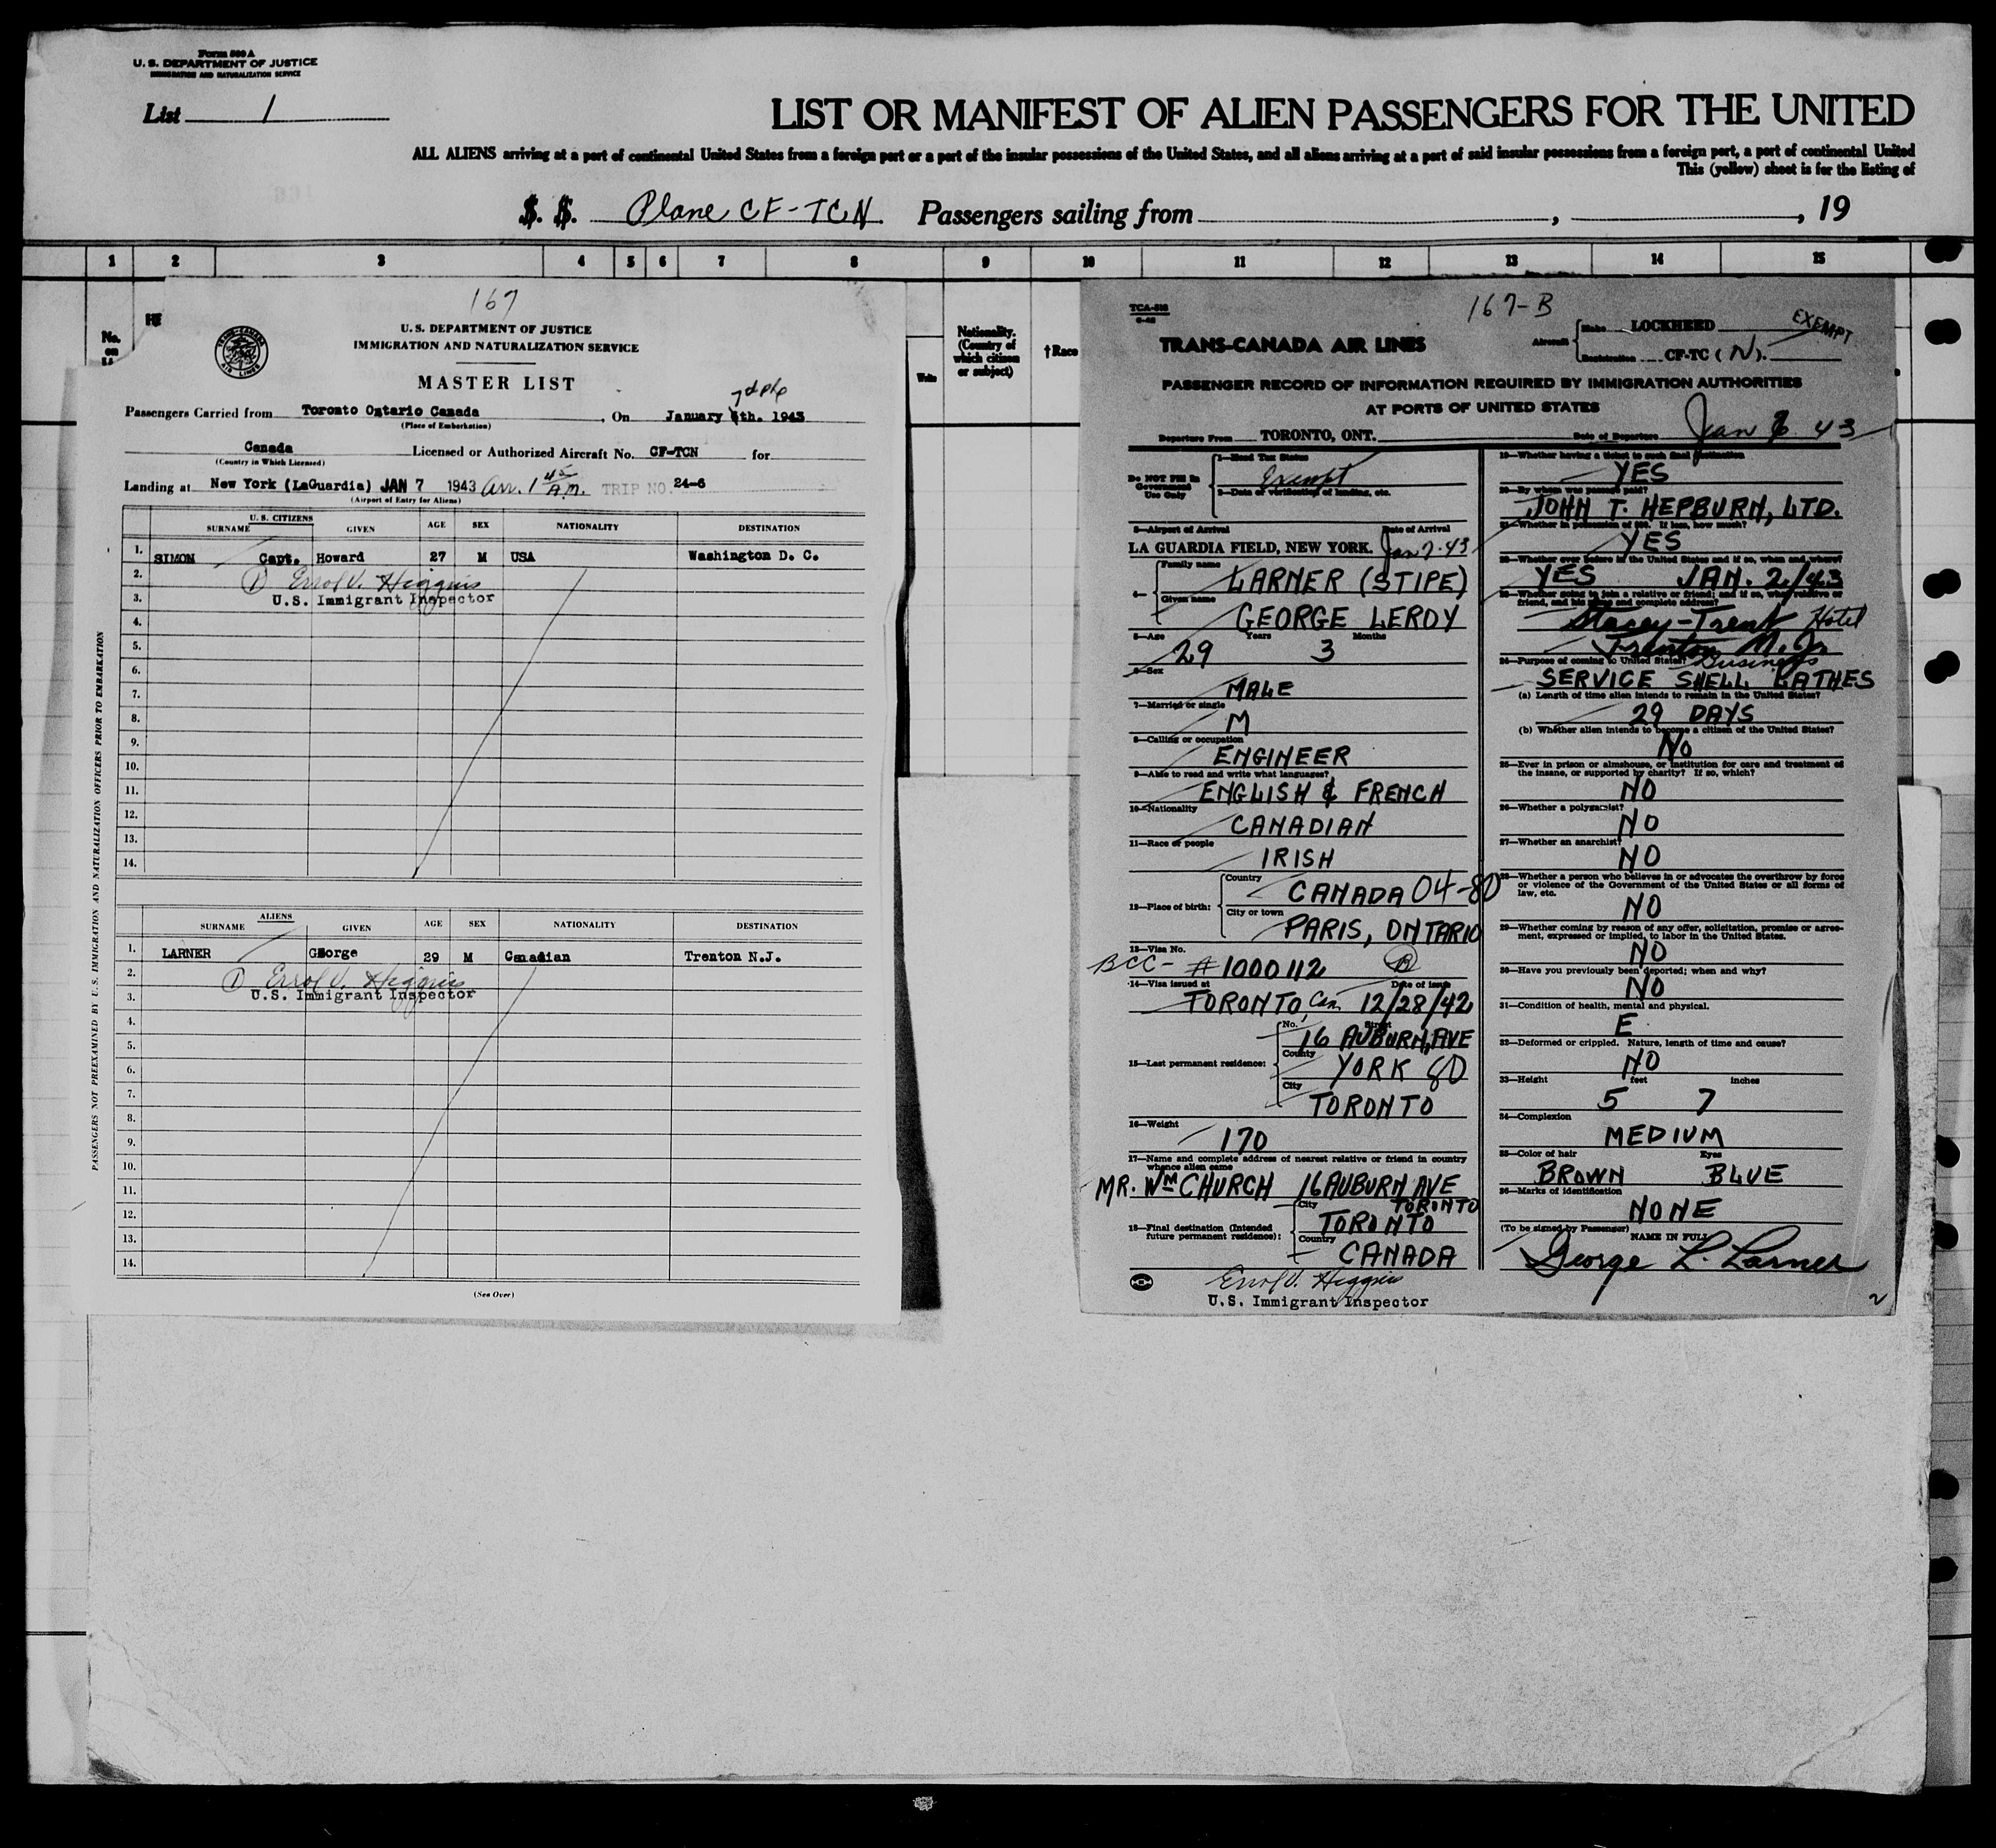 Form 500 A
U. S. DEPARTMENT OF JUSTICE
IMMIGRATION AND NATURALIZATION SERVICE
List 1
LIST OR MANIFEST OF ALIEN PASSENGERS FOR THE UNITED
ALL ALIENS arriving at a port of continental United States from a foreign port or a port of the insular possessions of the United States, and all aliens arriving at a port of said insular possessions from a foreign port, a port of continental United
This (yellow) sheet is for the listing of
S. S. Plane CF-TCN Passengers sailing from , , 19
1 2 3 4 5 6 7 8 9 10 11 12 13 14 15
No.
on
Write
Nationality.
(Country of
which citizen
or subject)
† Race
167
U. S. DEPARTMENT OF JUSTICE
IMMIGRATION AND NATURALIZATION SERVICE
MASTER LIST
7th
Passengers Carried from Toronto Ontario Canada , On January 6th. 1943
(Place of Embarkation)
Canada Licensed or Authorized Aircraft No. CF-TCN for
(Country in Which Licensed)
Landing at New York (LaGuardia) JAN 7 1943 Arr. 1 45 A.M. TRIP NO. 24-6
(Airport of Entry for Aliens)
U. S. CITIZENS
SURNAME GIVEN AGE SEX NATIONALITY DESTINATION
1. SIMON Capt. Howard 27 M USA Washington D. C.
2. (1) Errol V. Higgins
3. U.S. Immigrant Inspector
4.
5.
6.
7.
8.
9.
10.
11.
12.
13.
14.
ALIENS
SURNAME GIVEN AGE SEX NATIONALITY DESTINATION
1. LARNER George 29 M Canadian Trenton N.J.
2. (1) Errol V. Higgins
3. U.S. Immigrant Inspector
4.
5.
6.
7.
8.
9.
10.
11.
12.
13.
14.
(See Over)
PASSENGERS NOT PREEXAMINED BY U. S. IMMIGRATION AND NATURALIZATION OFFICERS PRIOR TO EMBARKATION
TCA-518
167-B
EXEMPT
TRANS-CANADA AIR LINES
Aircraft Make LOCKHEED
Registration CF-TC (N).
PASSENGER RECORD OF INFORMATION REQUIRED BY IMMIGRATION AUTHORITIES
AT PORTS OF UNITED STATES
Departure From TORONTO, ONT. Date of Departure Jan 6 43
Do NOT Fill In
Government
Use Only
1—Head Tax Status
Exempt
2—Date of verification of landing, etc.
3—Airport of Arrival Date of Arrival
LA GUARDIA FIELD, NEW YORK. Jan 7-43
4— Family name LARNER (STIPE)
Given name GEORGE LEROY
5—Age Years Months
29 3
6—Sex
MALE
7—Married or single
M
8—Calling or occupation
ENGINEER
9—Able to read and write what languages?
ENGLISH & FRENCH
10—Nationality
CANADIAN
11—Race or people
IRISH
12—Place of birth: Country CANADA 04-80
City or town PARIS, ONTARIO
13—Visa No.
BCC- #1000112 B
14—Visa issued at Date of issue
TORONTO, Can 12/28/42
15—Last permanent residence: No. Street 16 AUBURN, AVE
County YORK 80
City TORONTO
16—Weight
170
17—Name and complete address of nearest relative or friend in country
whence alien came
MR. WM CHURCH 16 AUBURN AVE
TORONTO
18—Final destination (Intended
future permanent residence): City TORONTO
Country CANADA
Errol V. Higgins
U.S. Immigrant Inspector
19—Whether having a ticket to such final destination
YES
20—By whom was passage paid?
JOHN T. HEPBURN, LTD.
21—Whether in possession of $50. If less, how much?
YES
22—Whether ever before in the United States and if so, when and where?
YES JAN. 2/43
23—Whether going to join a relative or friend; and if so, what relative or
friend, and his name and complete address?
Stacey-Trent Hotel
Trenton N.J.
24—Purpose of coming to United States? Business
SERVICE SHELL LATHES
(a) Length of time alien intends to remain in the United States?
29 DAYS
(b) Whether alien intends to become a citizen of the United States?
No
25—Ever in prison or almshouse, or institution for care and treatment of
the insane, or supported by charity? If so, which?
NO
26—Whether a polygamist?
NO
27—Whether an anarchist?
NO
28—Whether a person who believes in or advocates the overthrow by force
or violence of the Government of the United States or all forms of
law, etc.
NO
29—Whether coming by reason of any offer, solicitation, promise or agree-
ment, expressed or implied, to labor in the United States.
NO
30—Have you previously been deported; when and why?
NO
31—Condition of health, mental and physical.
E
32—Deformed or crippled. Nature, length of time and cause?
NO
33—Height feet inches
5 7
34—Complexion
MEDIUM
35—Color of hair Eyes
BROWN BLUE
36—Marks of identification
NONE
(To be signed by Passenger) NAME IN FULL
George L. Larner
2